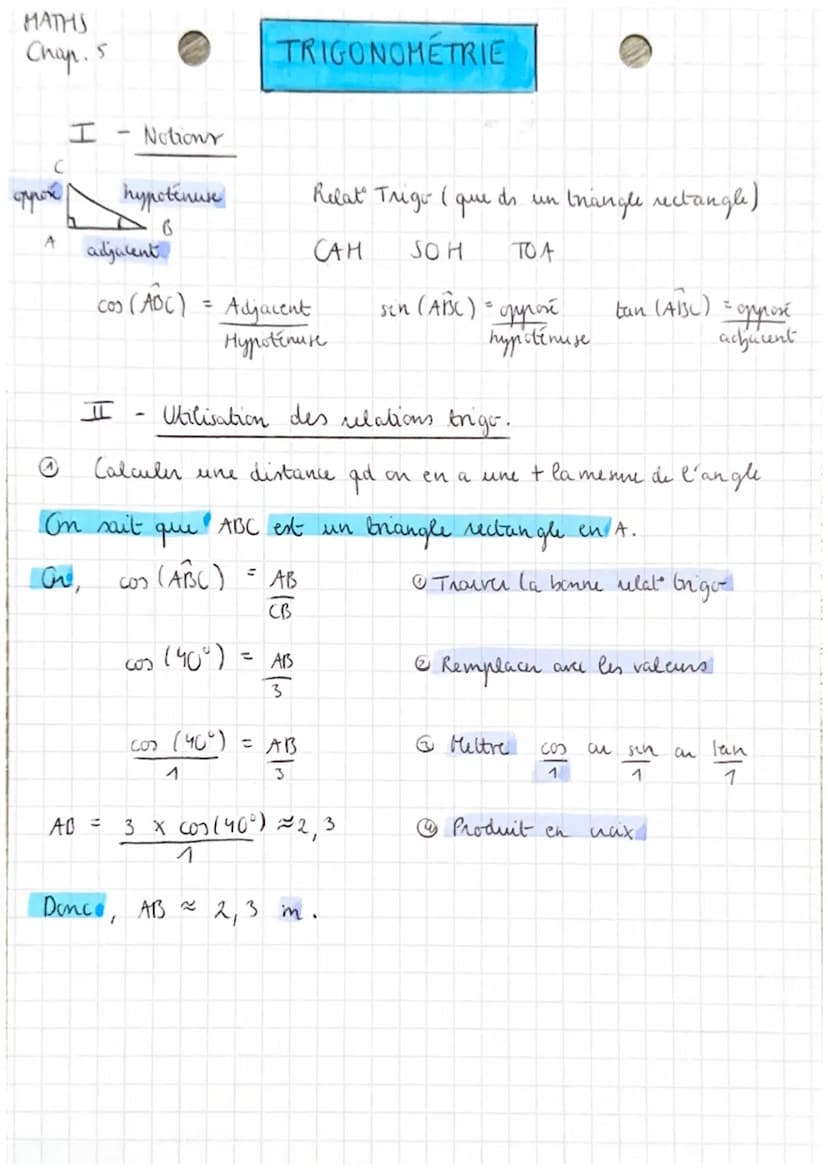 MATHS
Chap. 5
TRIGONOMÉTRIE
I - Notions
C
opposé hypoténuse
A B
adjacent
Relat° Trigo (que ds un triangle rectangle)
CAH SOH TOA
cos (ABC) = Adjacent / Hypoténuse sin (ABC) = opposé / hypoténuse tan (ABC) = opposé / adjacent
II - Utilisation des relations trigo.
① Calculer une distance qd on en a une + la mesure de l'angle
On sait que ABC est un triangle rectangle en A.
Or, cos (ABC) = AB / CB ① Trouver la bonne relat° trigo
cos (40°) = AB / 3 ② Remplacer avec les valeurs
cos (40°) / 1 = AB / 3 ③ Mettre cos / 1 ou sin / 1 ou tan / 1
AB = 3 x cos(40°) / 1 ≈ 2,3 ④ Produit en croix
Donc, AB ≈ 2,3 m.